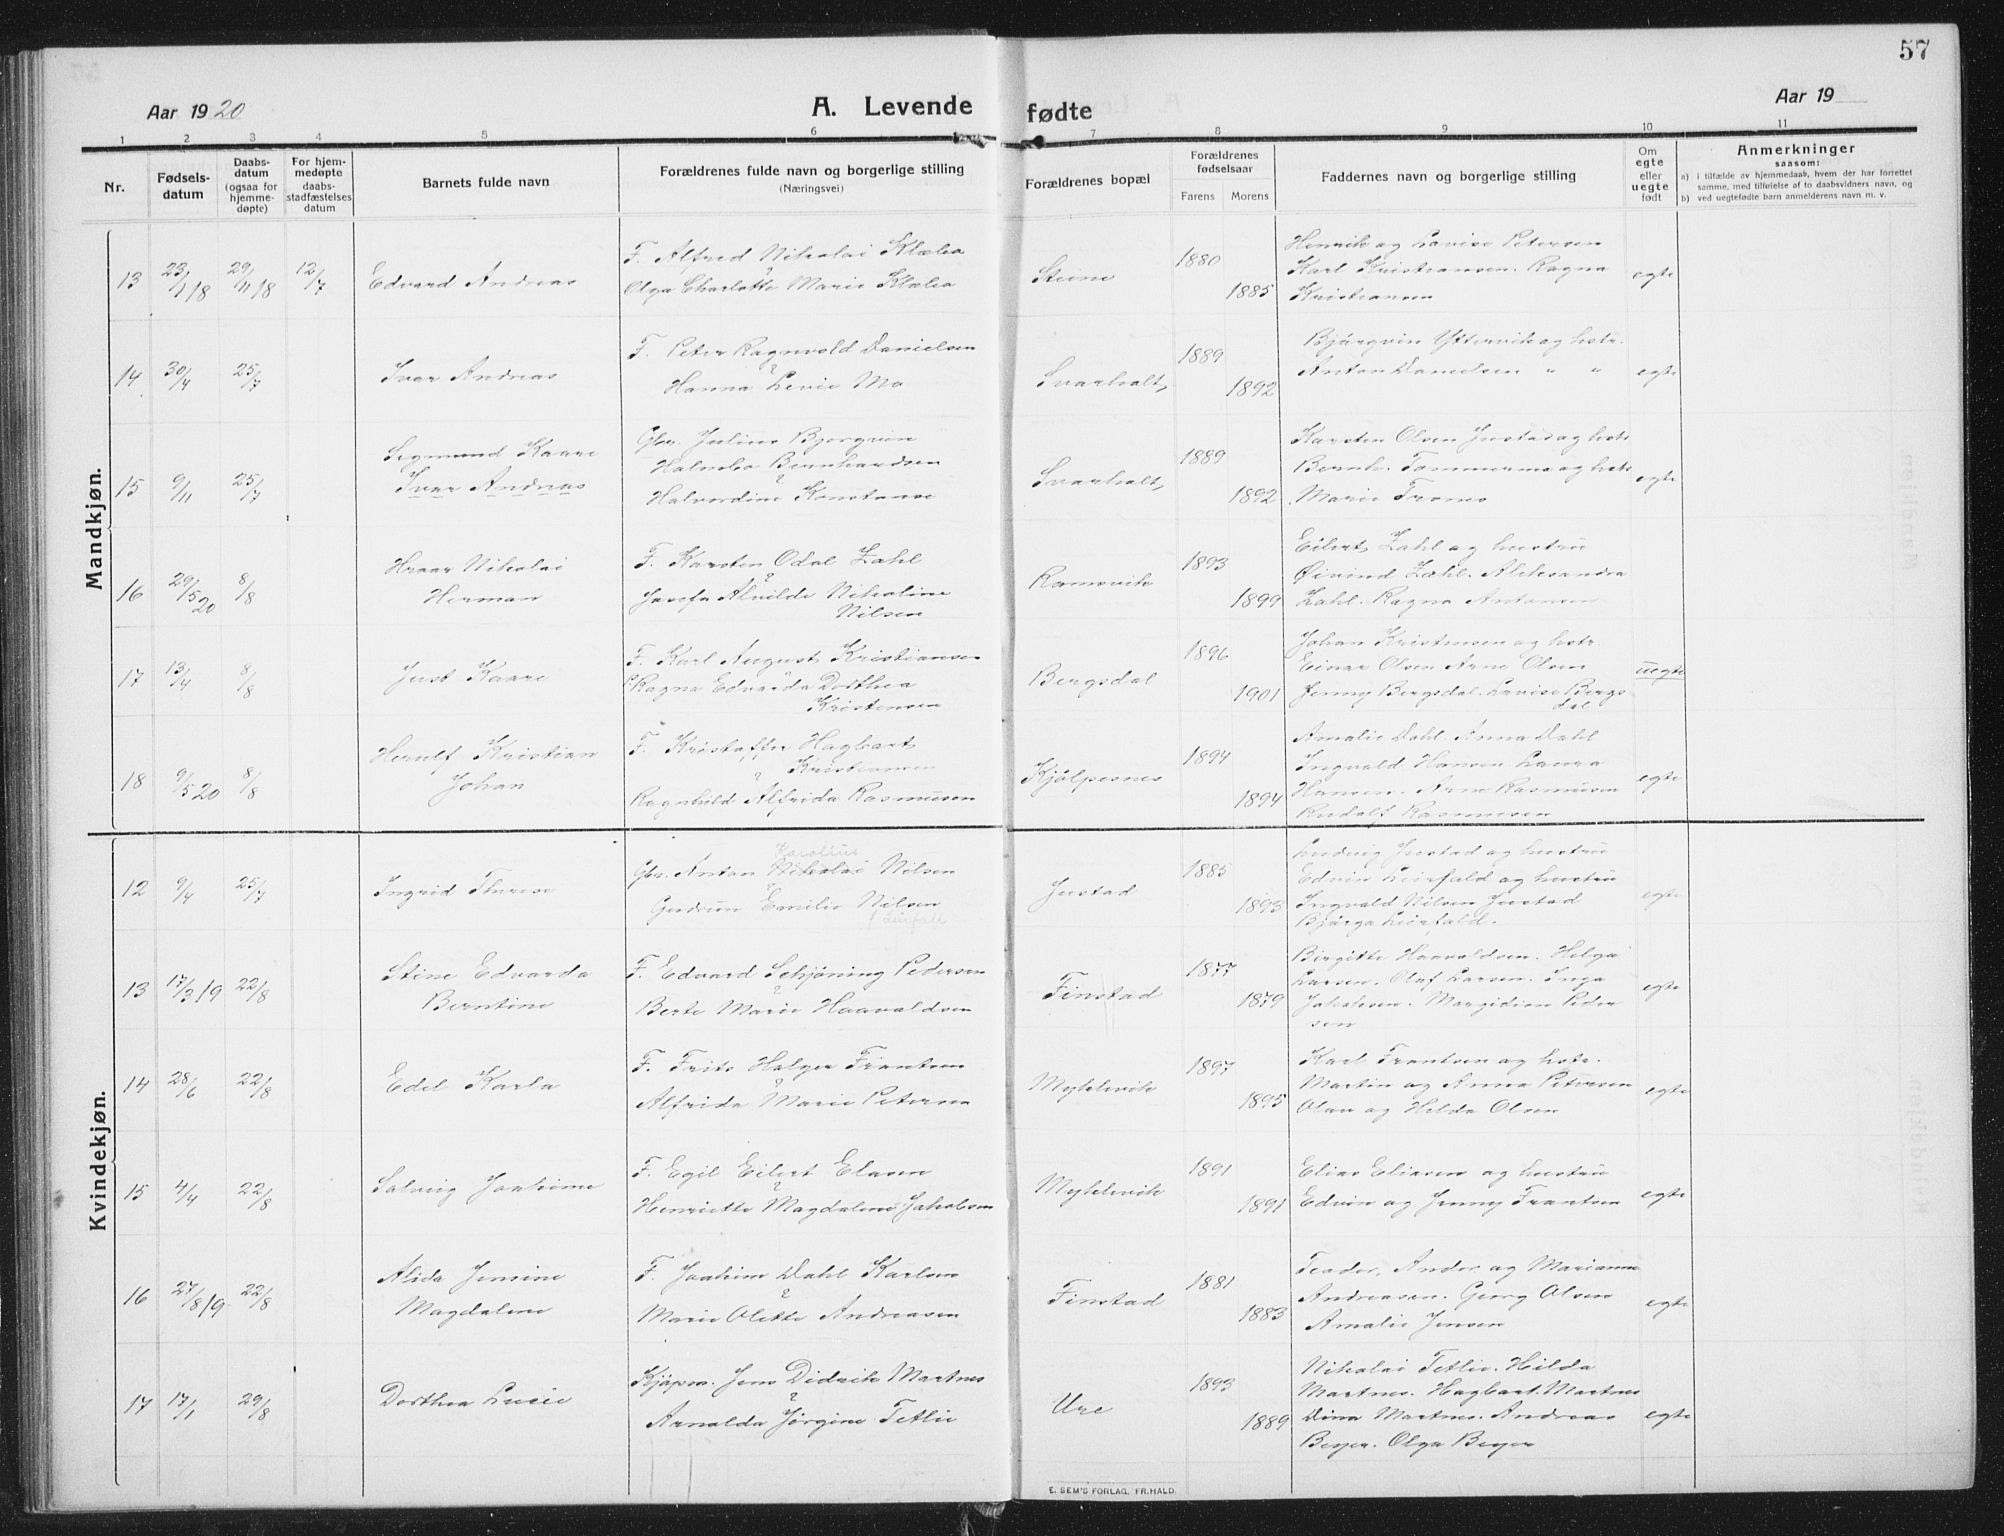 57
Aar 1920
A. Levende fødte
Aar 19
1 2 3 4 5 6 7 8 9 10 11
Nr.
Fødsels-
datum
Daabs-
datum
(ogsaa for
hjemme-
døpte)
For hjem-
medøpte
daabs-
stadfæstelses
datum
Barnets fulde navn
Forældrenes fulde navn og borgerlige stilling
(Næringsvei)
Forældrenes bopæl
Forældrenes
fødselsaar
Farens Morens
Faddernes navn og borgerlige stilling
Om
egte
eller
uegte
født
Anmerkninger
saasom:
a) i tilfælde av hjemmedaab, hvem der har forrettet
samme, med tilføielse af to daabsvidners navn, og
b) ved uegtefødte barn anmelderens navn m. v.
Mandkjøn.
13 23/11 18 29/11 18 12/7 Edvard Andreas
F. Alfred Nikolai Klæbo
Olga Charlotte Marie Klæbo
Steine 1880 1885
Henrik og Lovise Petersen
Karl Kristiansen. Ragna
Kristiansen
egte
14 30/4 25/7 Ivar Andreas
F. Peter Ragnvald Danielsen
Hanna Levie Mo
Svarholt 1889 1892
Bjørgvin Yttervik og hstr.
Anton Danielsen " "
egte
15 9/11 25/7 Segmund Kaare
Ivar Andreas
Gbr. Julius Bjorgvin
Holmbo Bernhardsen
Halvordine Konstanse
Svarholt 1889 1892
Karsten Olsen Justad og hstr
Bernh. Tommermo og hstr
Marie Trones
egte
16 29/5 20 8/8 Hroar Nikolai
Herman
F. Karsten Odal Zahl
Josefa Alvilde Nikoline
Nilsen
Ramsvik 1893 1899
Eilert Zahl og hustru
Øivind Zahl. Aleksandra
Zahl. Ragna Antonsen
egte
17 13/4 8/8 Just Kaare
F. Karl August Kristiansen
P. Ragna Edvarda Dorthea
Kristensen
Bergsdal 1896 1901
Johan Kristensen og hstr.
Einar Olsen Arne Olsen
Jenny Bergsdal. Lovise Bergs
dal
uegte
18 9/5 20 8/8 Herulf Kristian
Johan
F. Kristoffer Hagbart
Kristiansen
Ragnhild Alfrida Rasmusen
Kjölpesnes 1894 1894
Amalie Dahl. Anna Dahl
Ingvald Hansen Laura
Hansen. Arne Rasmusen
Rudolf Rasmusen
egte
Kvindekjøn.
12 9/4 25/7 Ingrid Therese
Karolius
Gbr. Anton Nikolai Nilsen
Gudrun Emilie Nilsen
f Leirfall
Justad 1885 1893
Ludvig Justad og hustru
Edvin Leirfald og hustru
Ingvald Nilsen Justad
Bjørga Leirfald.
egte
13 17/3 19 22/8 Stine Edvarda
Berntine
F. Edvard Schjöning Pedersen
Berte Marie Haavaldsen
Finstad 1877 1879
Birgitte Haavaldsen. Helga
Larsen. Olaf Larsen. Inga
Jakobsen. Margidion Peder
sen
egte
14 28/6 22/8 Edel Karla
F. Frits Holger Frantsen
Alfrida Marie Petersen
Myklevik 1897 1895
Karl Frantsen og hstr.
Martin og Anna Petersen
Olav og Hilda Olsen
egte
15 4/4 22/8 Solveig Joakime
F. Egil Eilert Elasen
Henriette Magdalene Jakobsen
Myklevik 1891 1891
Elias Eliasen og hustru
Edvin og Jenny Frantsen
egte
16 27/8 19 22/8 Alida Jensine
Magdalene
F. Joakim Dahl Karlsen
Marie Olette Andreasen
Finstad 1881 1883
Teodor, Andor og Marianne
Andreasen. Georg Olsen
Amalie Jensen
egte
17 17/1 29/8 Dorthea Lucie
Kjøpm. Jens Didrik Martnes
Arnolda Jørgine Tetlie
Ure 1893 1889
Nikolai Tetlie. Hilda
Martnes. Hagbart Martnes
Dina Martnes. Andreas
Beyer. Olga Beyer
egte
E. SEM'S FORLAG, FR.HALD.